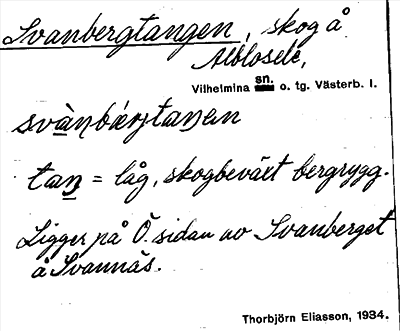 Svanbergtangen, skog å
Alblosele,
Vilhelmina sn. o. tg. Västerb. l.
svànbærjtaŋen
taŋ = låg, skogbeväxt bergrygg.
Ligger på Ö. sidan av Svanberget
å Svannäs.
Thorbjörn Eliasson, 1934.